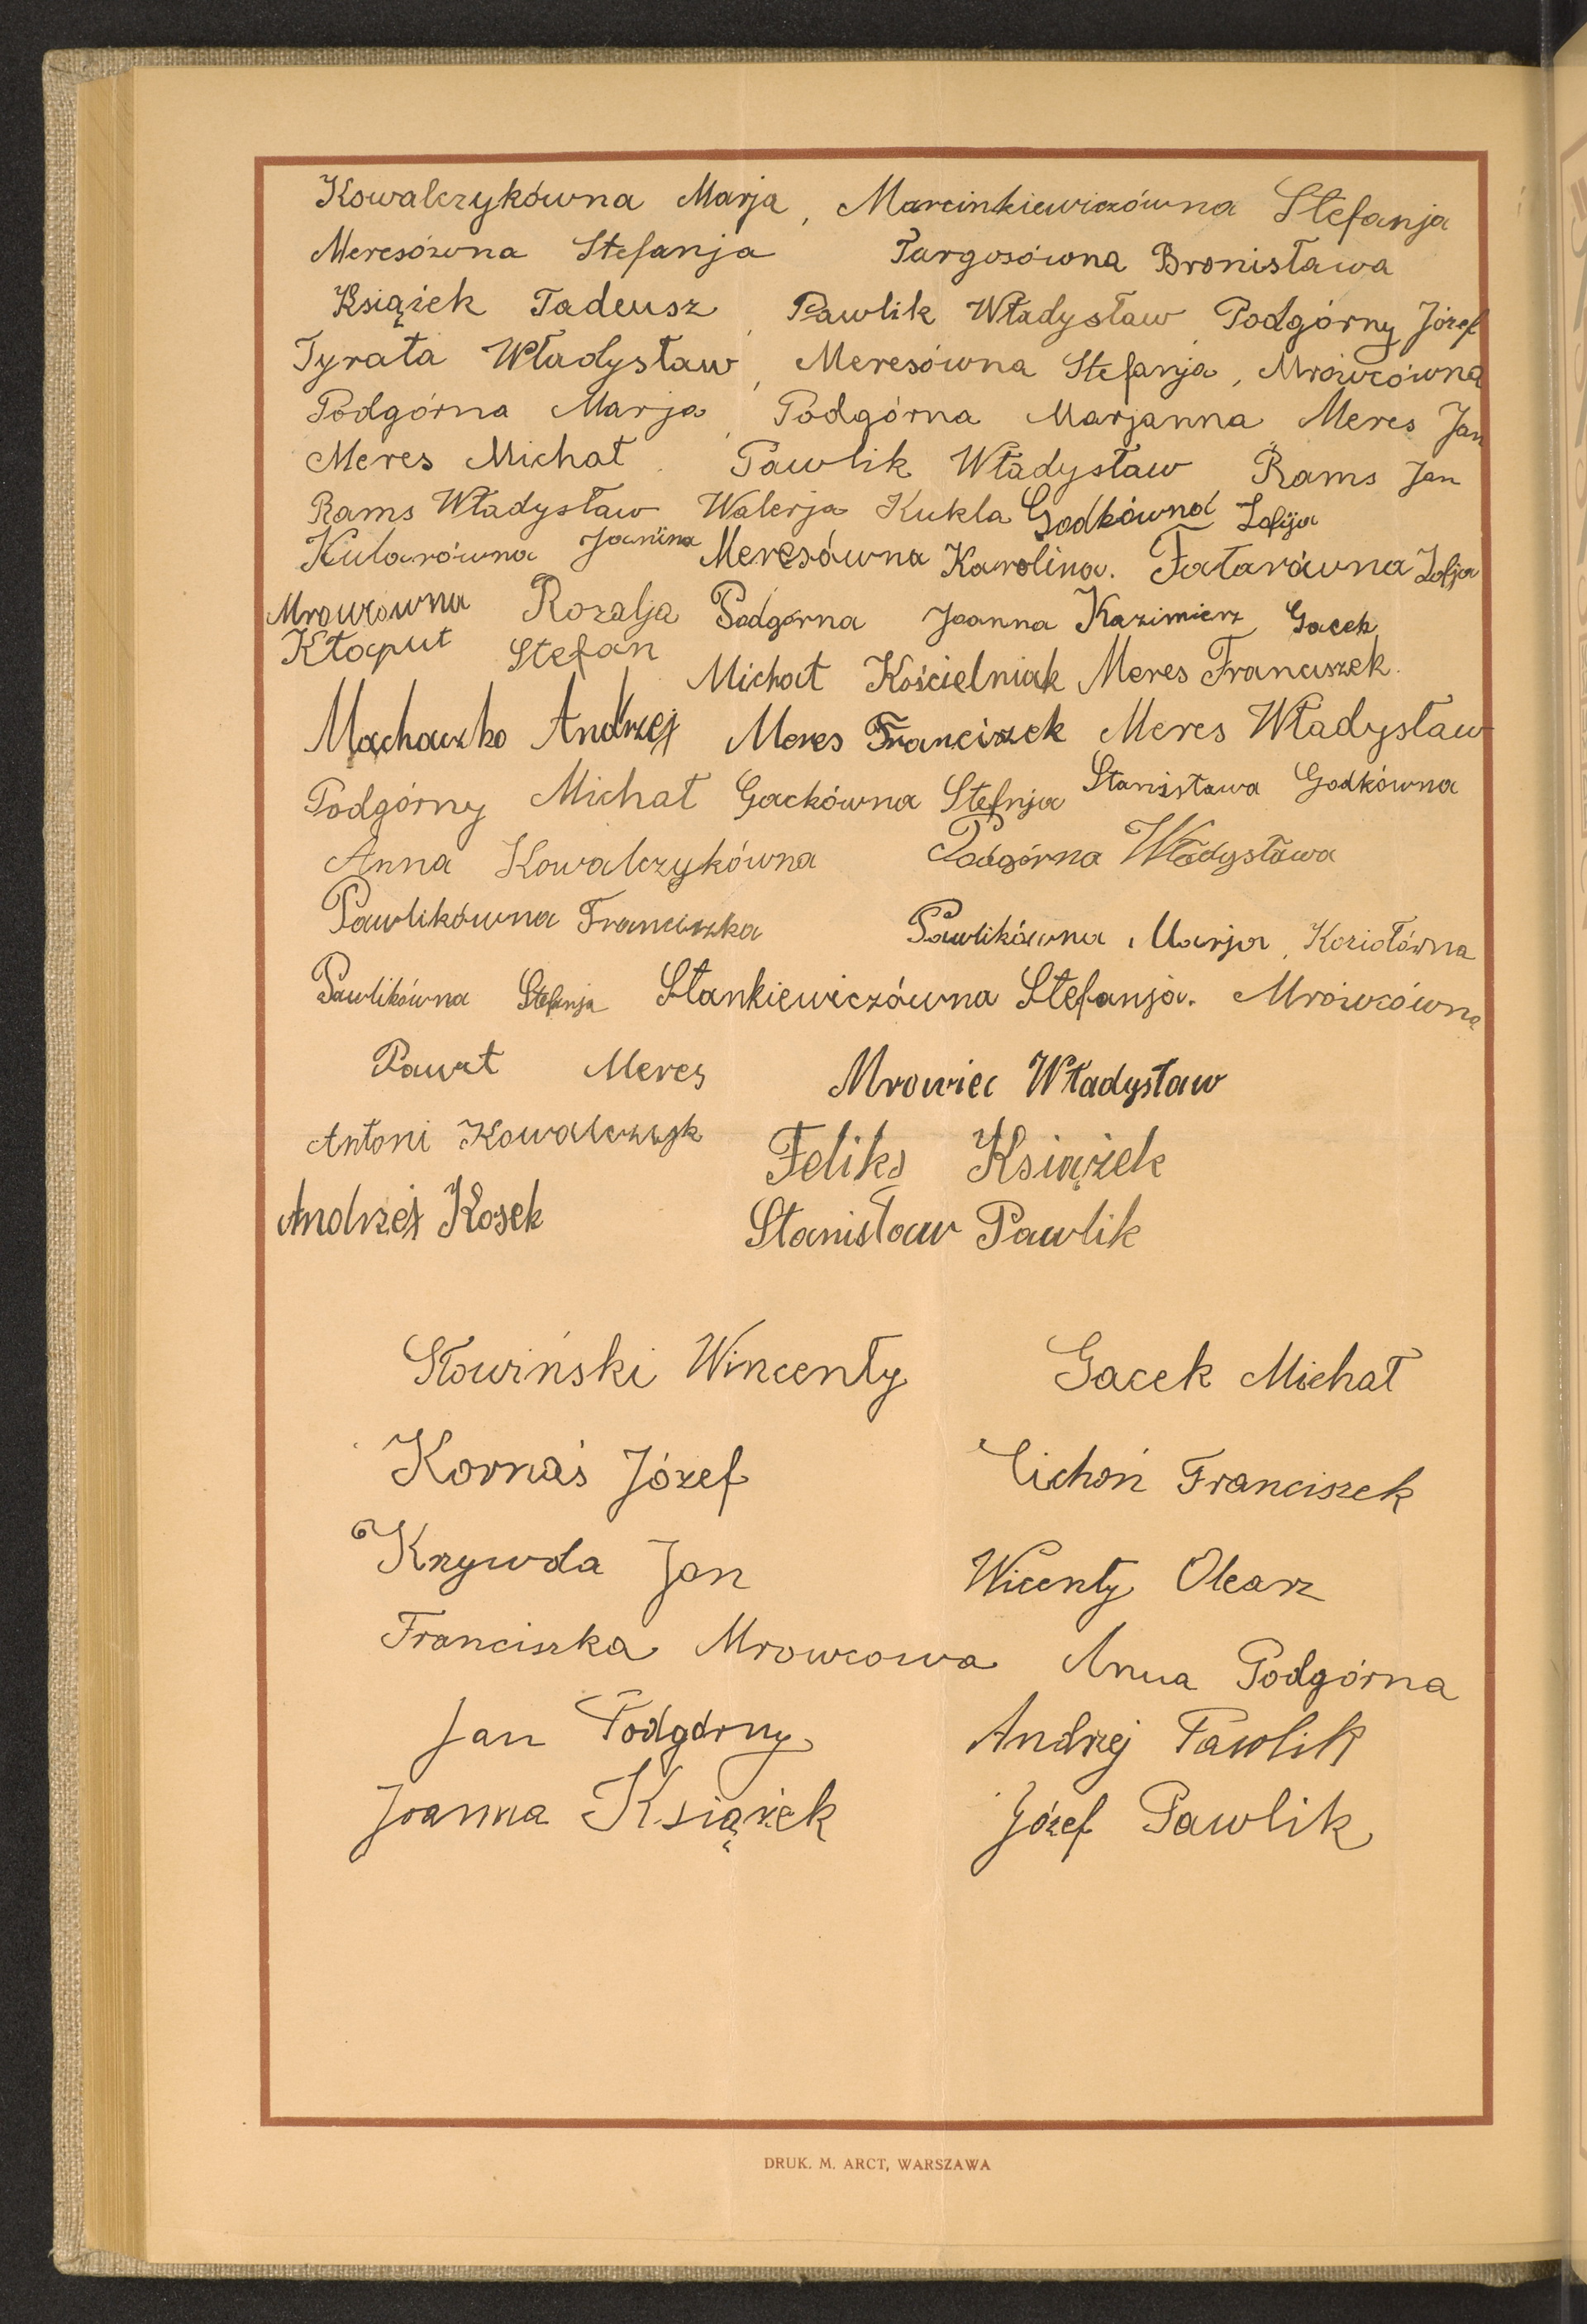 Kowalczykówna Marja, Marcinkiewiczówna Stefanja
Meresówna Stefanja Targosówna Bronisława
Książek Tadeusz, Pawlik Władysław, Podgórny Józef
Tyrała Władysław, Meresówna Stefanja, Mrówcówna
Podgórna Marja, Podgórna Marjanna Meres Jan
Meres Michał. Pawlik Władysław Rams Jan
Rams Władysław Walerja Kukla Godkówna Zofija
Kularówna Janina Meresówna Karolina. Fatarówna Zofja
Mrowcówna Rozalja Podgórna Joanna Kazimierz Gacek
Kłaput Stefan Michał Kościelniak Meres Franciszek.
Machaczko Andrzej Meres Franciszek Meres Władysław
Podgórny Michał Gackówna Stefnja Stanisława Godkówna
Anna Kowalczykówna Podgórna Władysława
Pawlikówna Franciszka Pawlikówna Marja, Koziołówna
Pawlikówna Stefanja Stankiewiczówna Stefanja. Mrówcówna
Paweł Meres Mrowiec Władysław
Antoni Kowalczyk Feliks Książek
Andrzej Kosek Stanisław Pawlik
Słowiński Wincenty Gacek Michał
Kornaś Józef Cichoń Franciszek
Krzywda Jan Wicenty Olearz
Franciszka Mrowcowa Anna Podgórna
Jan Podgórny Andrzej Pawlik
Joanna Książek Józef Pawlik
DRUK. M. ARCT, WARSZAWA